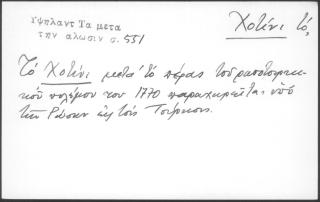 Υψηλαντ Τα μετα
την αλωσιν σ. 551
Χοτίνι τό,
Τό Χοτίνι μετά τό πέρας τοῦ ρωσοτουρκι-
κοῦ πολέμου του 1770 παραχωρεῖται ὑπό
τῶν Ρώσων εἰς τούς Τούρκους.